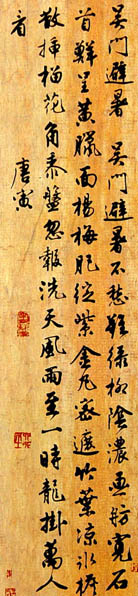 吳門避暑 吳門避暑不愁難綠柳陰濃畫舫寬石
首鮮呈黃臘面楊梅肥綻紫金丸密遮竹葉涼冰檐
散插榴花角黍盤忽報洗天風雨至一時龍掛萬人
看
唐寅